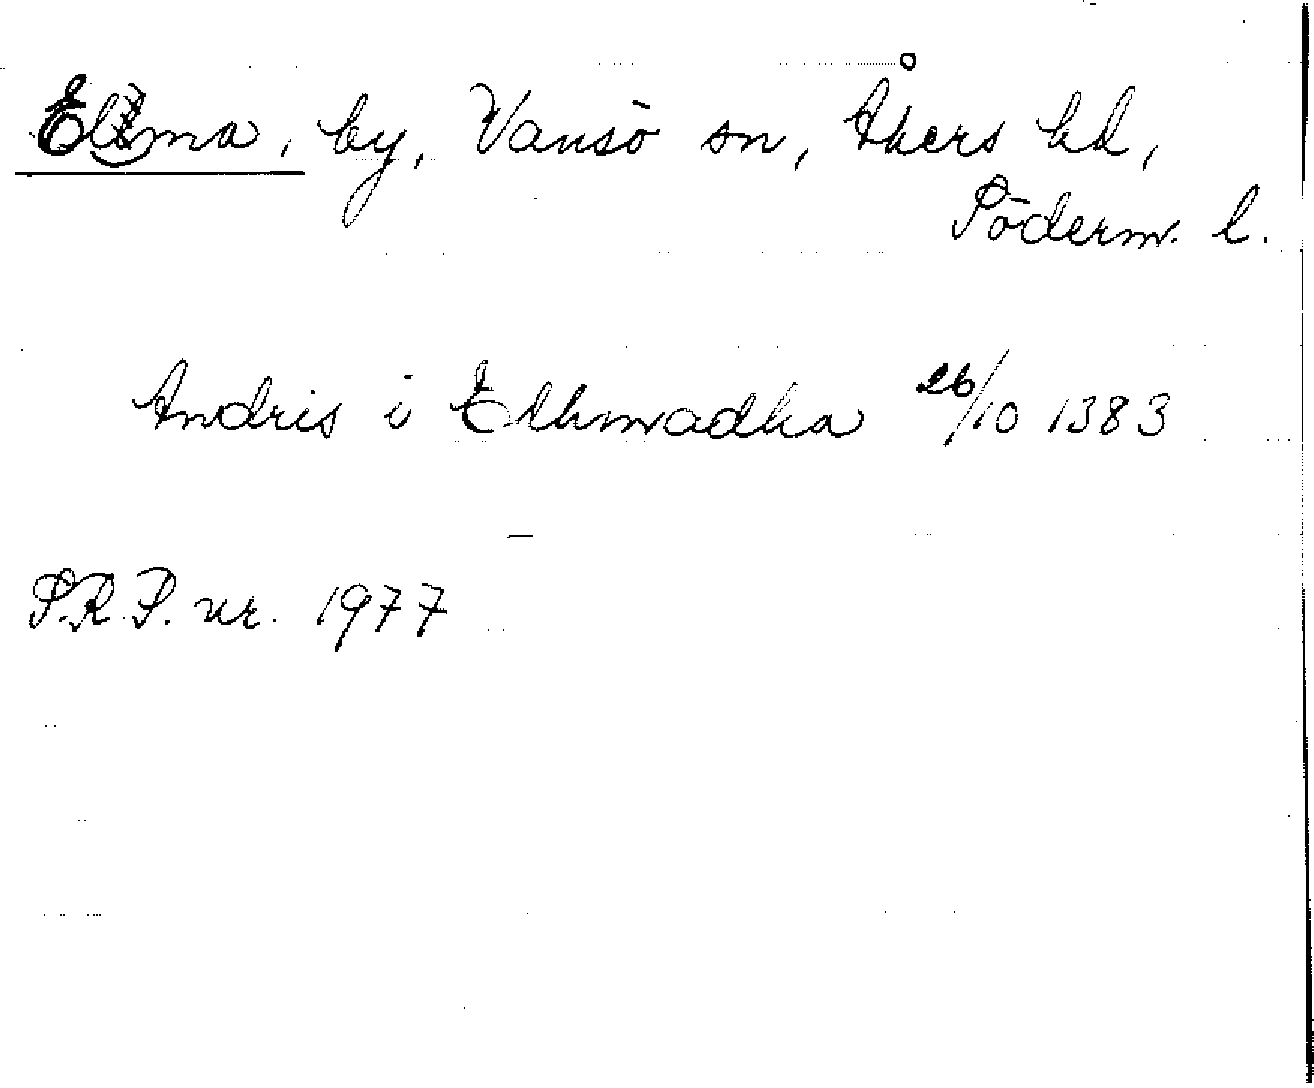 Elma, by, Vansö sn, Åkers hd,
Söderm. l.
Andris i Elhmadha 26/10 1383
S.R.P. nr. 1977